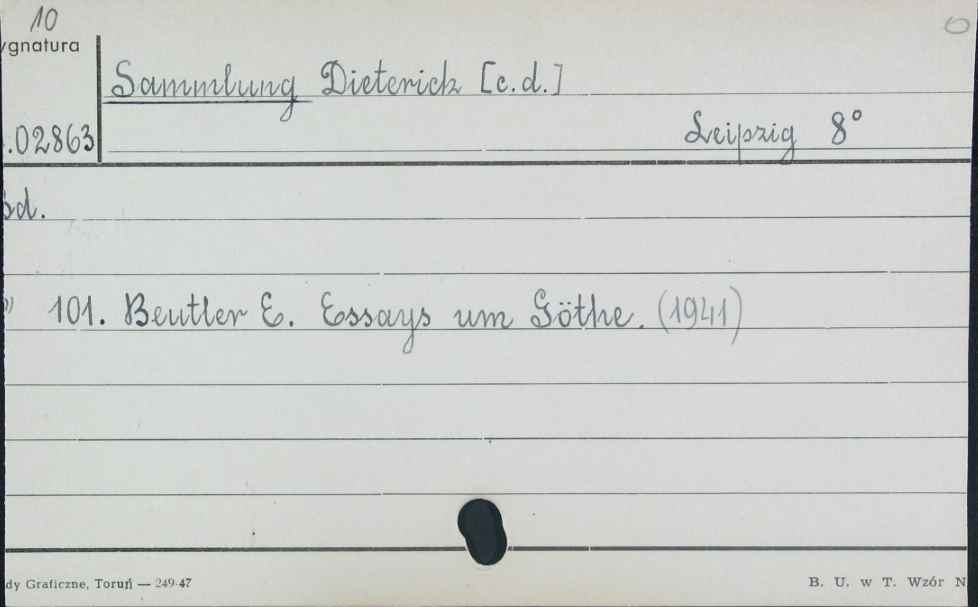 10
ygnatura
Sammlung Dieterich [c.d.]
.02863
Leipzig 8°
ód.
") 101. Beutler E. Essays um Göthe. (1941)
dy Graficzne, Toruń — 249-47
B. U. w T. Wzór N